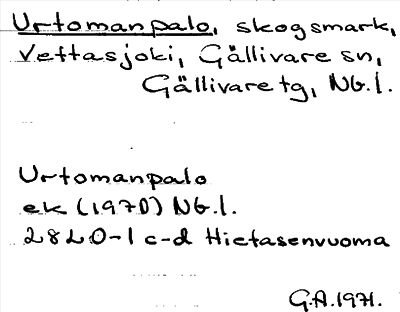 Urtomanpalo, skogsmark,
Vettasjoki, Gällivare sn,
Gällivare tg, Nb.l.
Urtomanpalo
ek (1970) Nb.l.
28L0-1 c-d Hietasenvuoma
G.A. 1971.